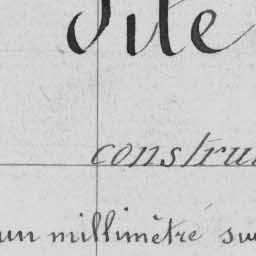 dite
constru
un millimètre su